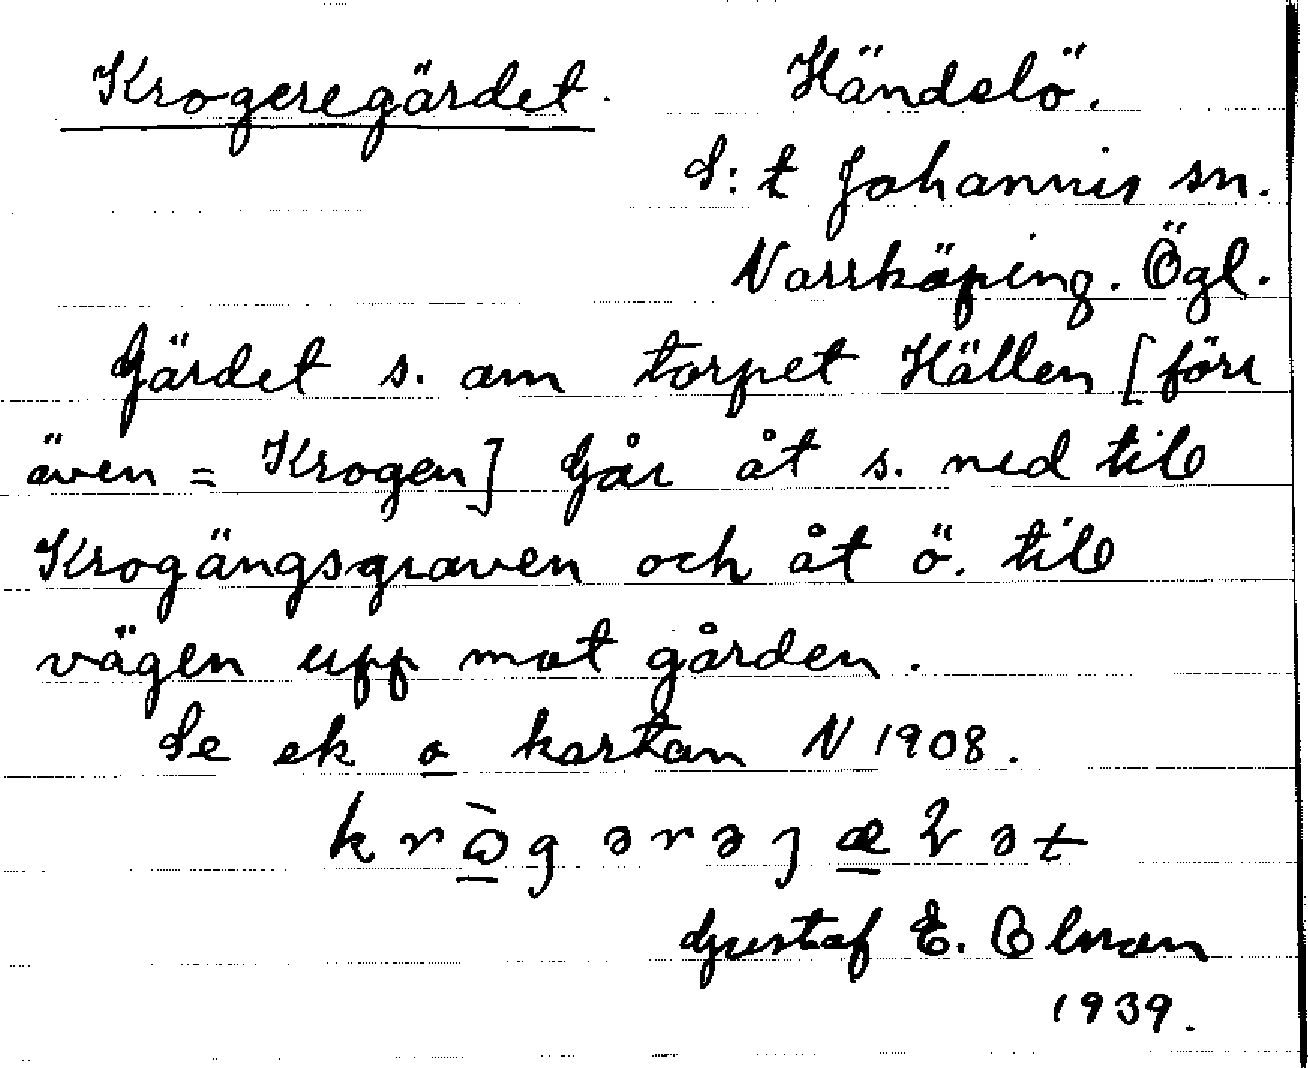 Krogeregärdet. Händelö.
S:t Johannis sn.
Norrköping. Ögl.
Gärdet s. om torpet Hällen [förr
även = Krogen] Går åt s. ned till
Krogängsgraven och åt ö. till
vägen upp mot gården.
Se ek o kartan N 1908.
Gustaf E. Olson
1939.